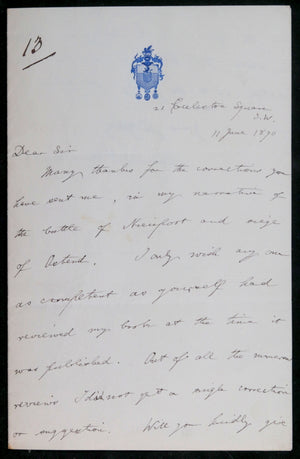 13
21 Eccleston Square
S.W.
11 June 1890
Dear Sir
Many thanks for the corrections you
have sent me, in my narrative of
the battle of Nieuport and siege
of Ostend. I only wish any one
as competent as yourself had
reviewed my book at the time it
was published. Out of all the numerous
reviews I did not get a single correction
or suggestion. Will you kindly give